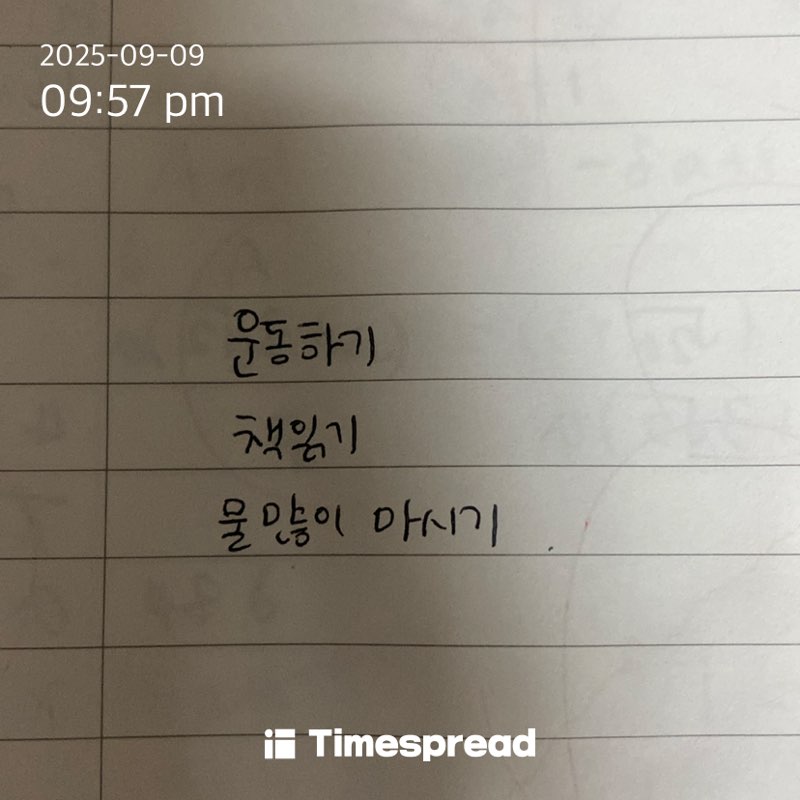 2025-09-09
09:57 pm
운동하기
책읽기
물많이 마시기
Timespread